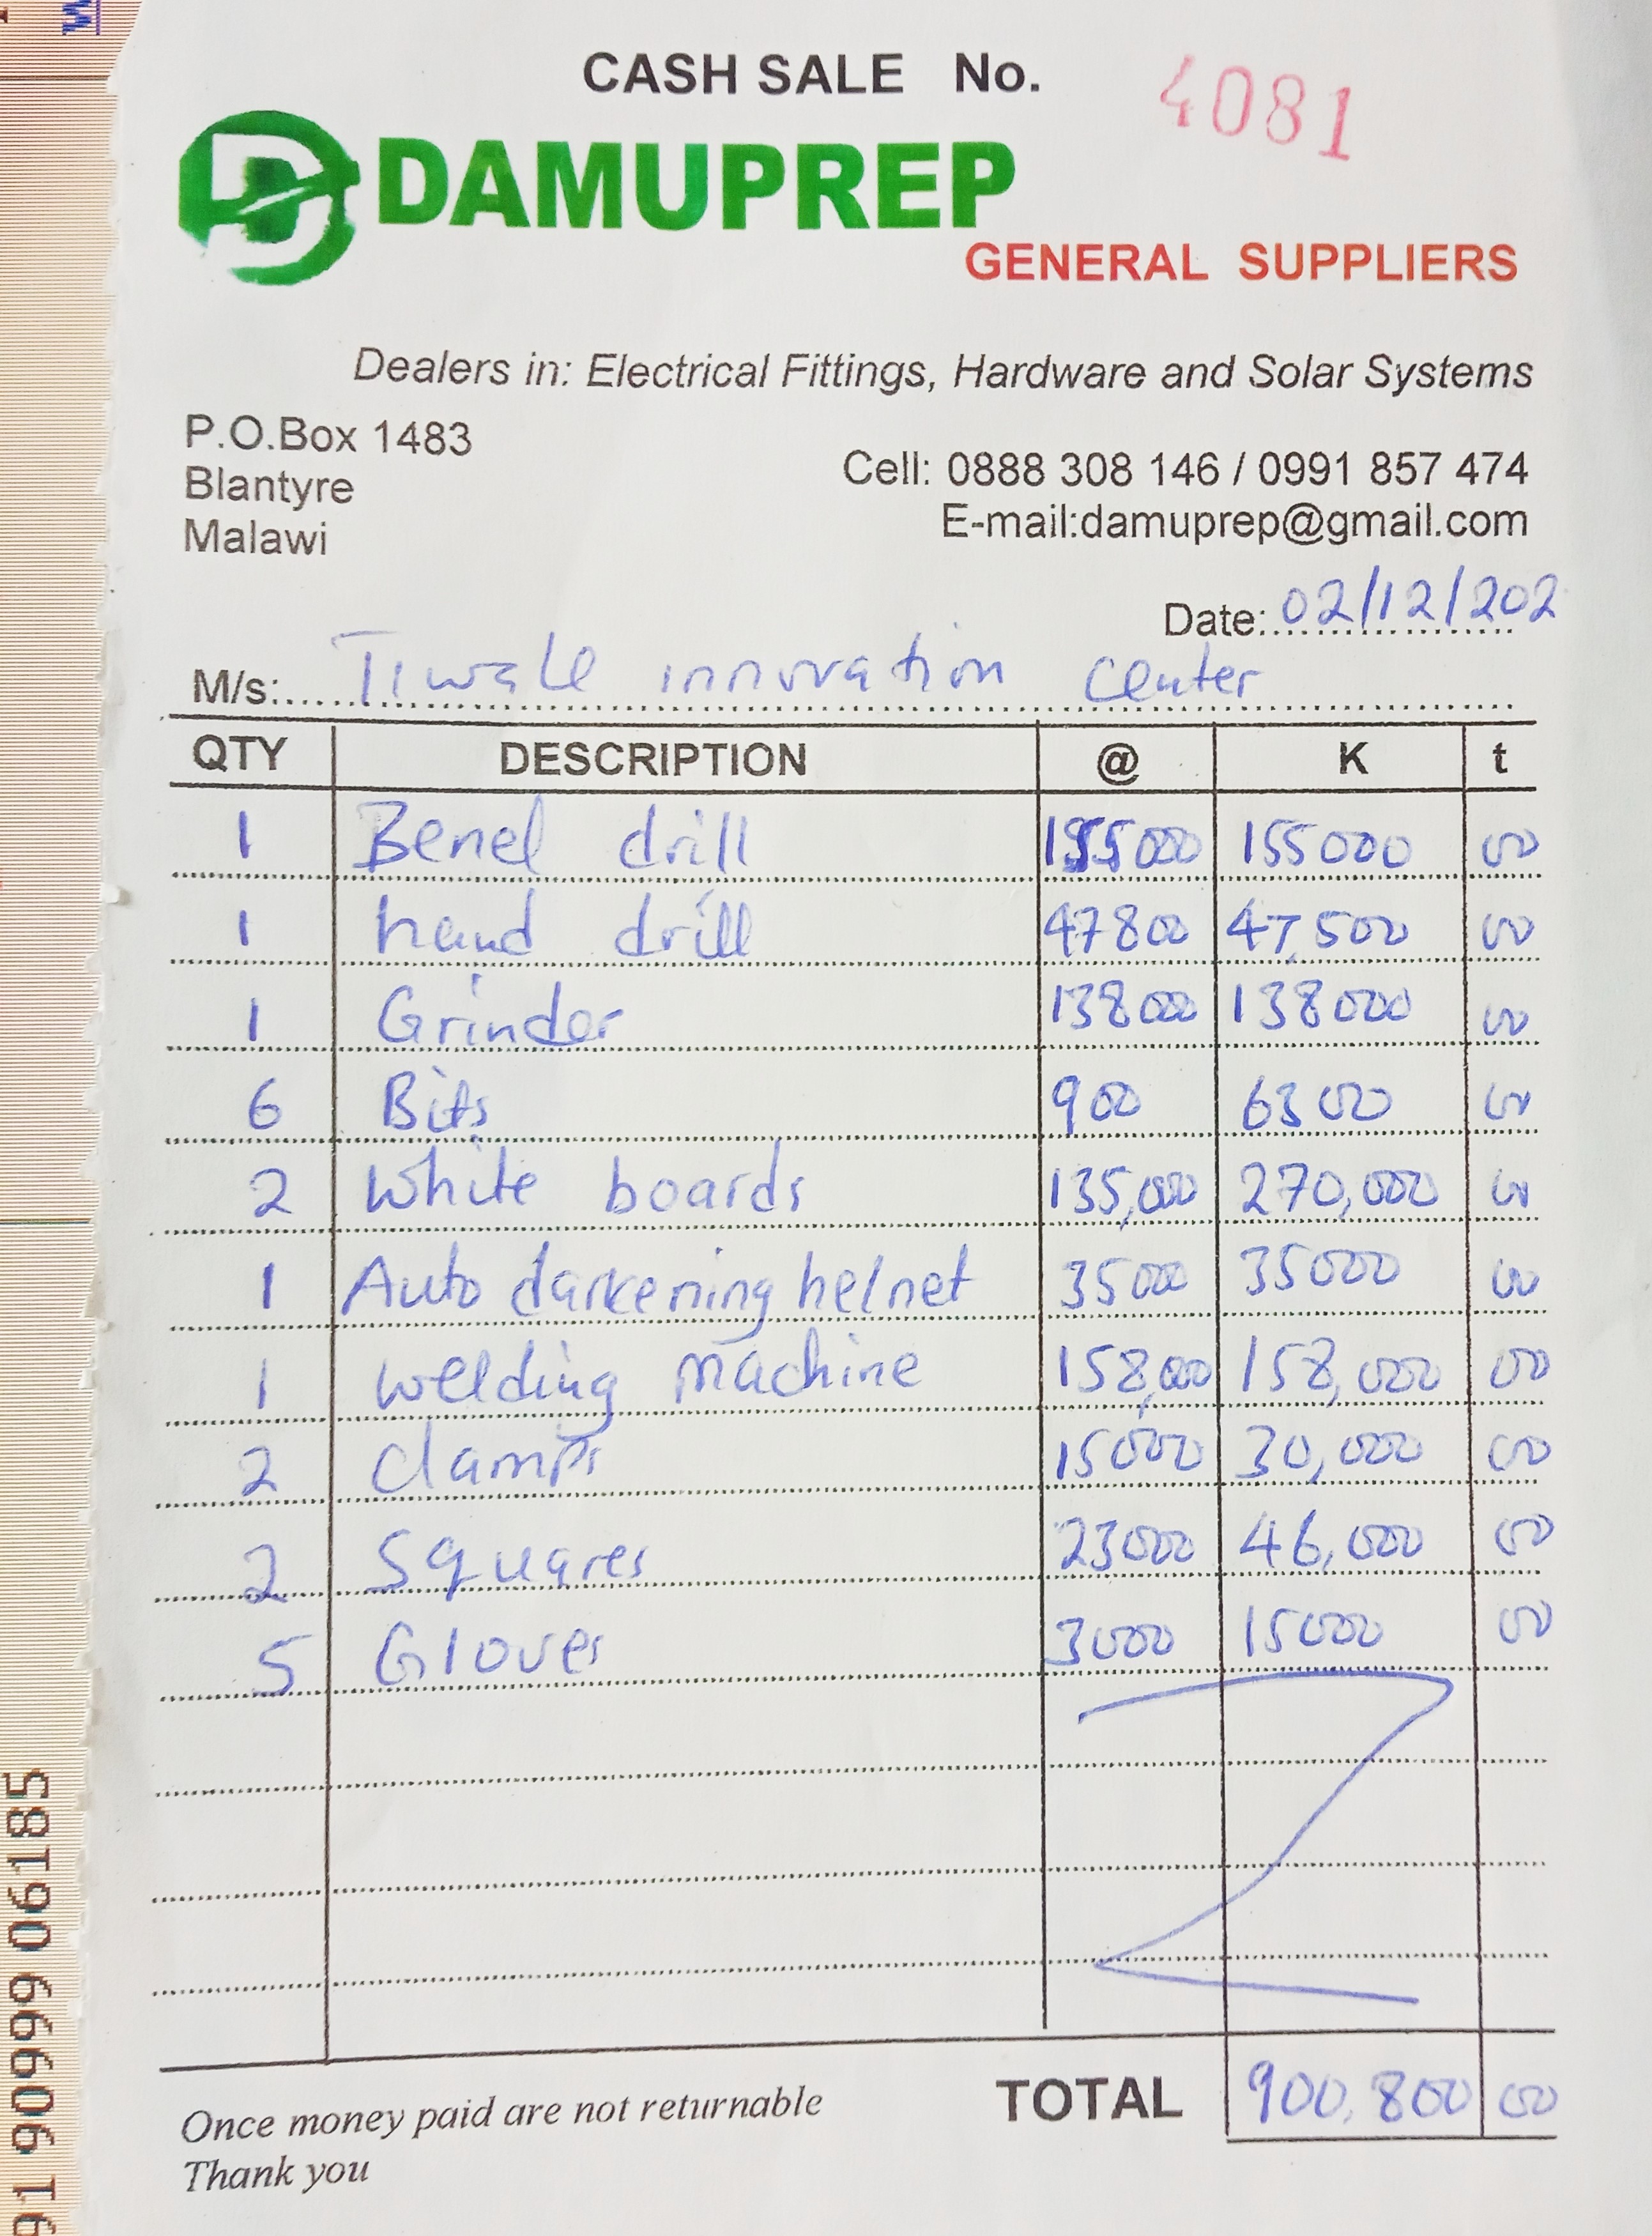 CASH SALE No. 4081
DAMUPREP
GENERAL SUPPLIERS
Dealers in: Electrical Fittings, Hardware and Solar Systems
P.O.Box 1483
Blantyre
Malawi
Cell: 0888 308 146 / 0991 857 474
E-mail:damuprep@gmail.com
Date: 02/12/202
M/s: Tiwale innovation center
QTY DESCRIPTION @ K t
1 Benel drill 155000 155000 00
1 hand drill 47800 47,500 00
1 Grinder 138000 138000 00
6 Bits 900 6300 00
2 White boards 135,000 270,000 00
1 Auto darkening helnet 35000 35000 00
1 welding machine 158,000 158,000 00
2 clamps 15000 30,000 00
2 Squares 23000 46,000 00
5 Gloves 3000 15000 00
TOTAL 900,800 00
Once money paid are not returnable
Thank you
91 90999 06185